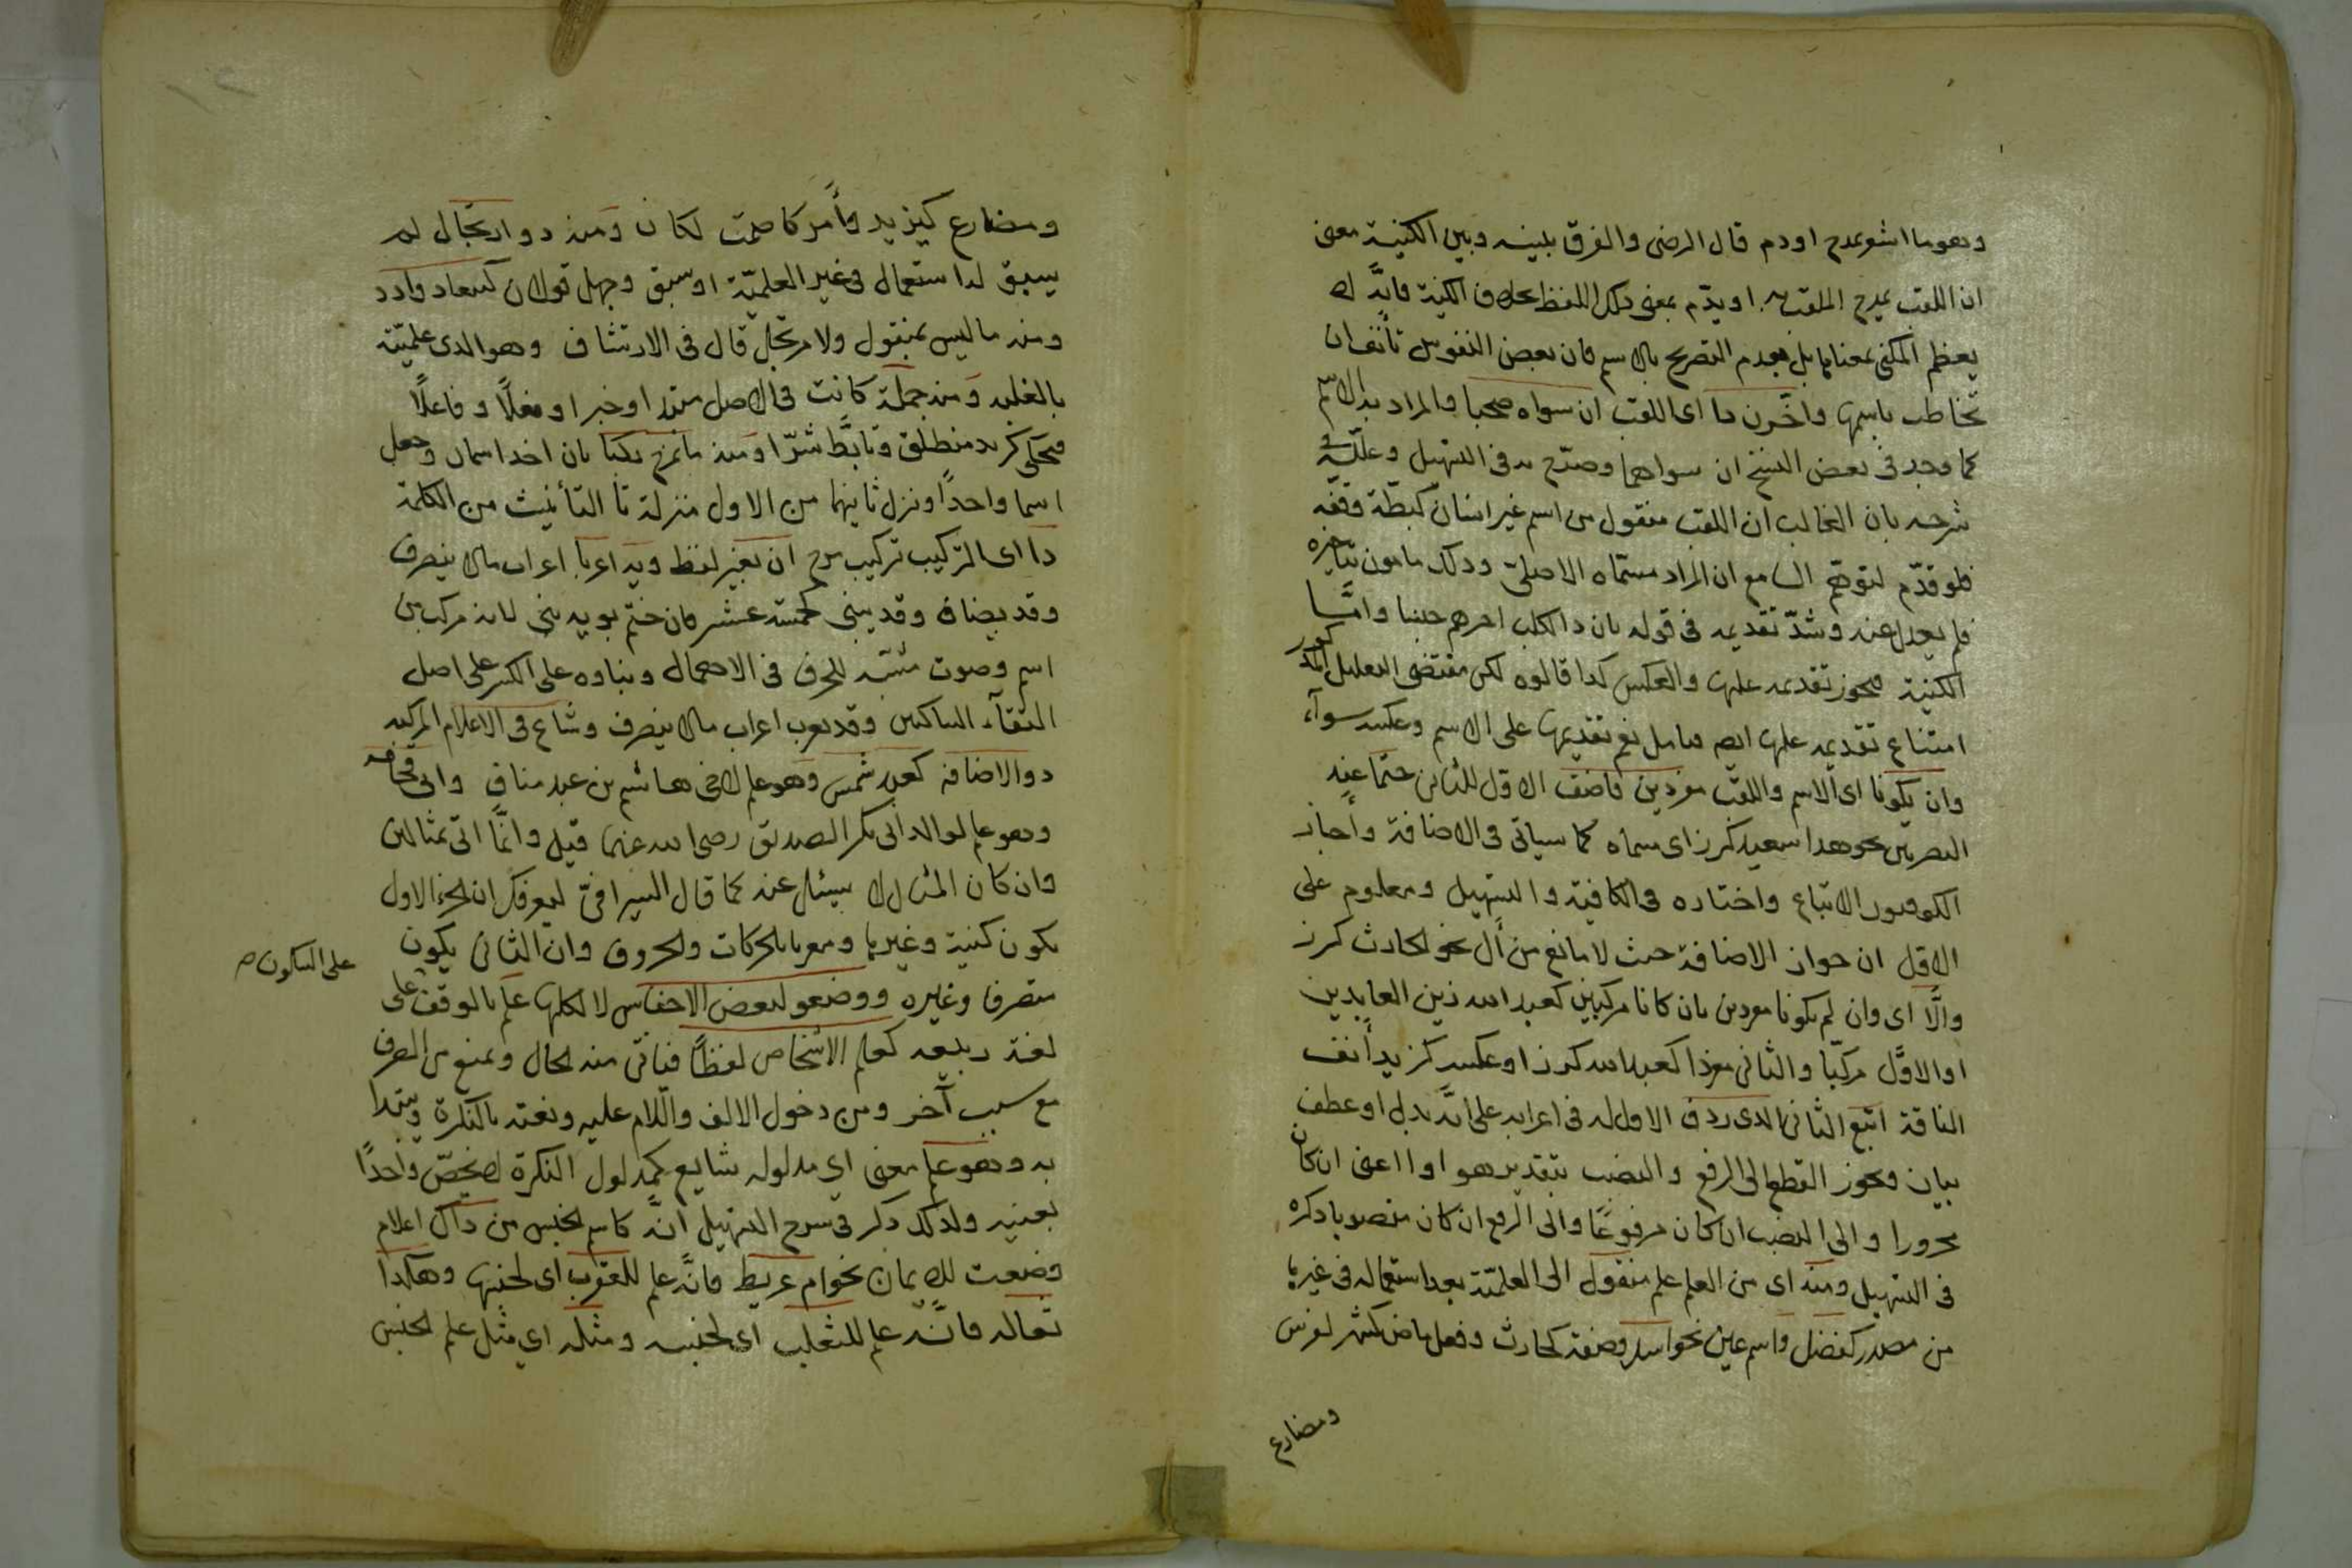 وهو ما اشعر بمدح او ذم قال الرضى والفرق بينه وبين الكنية معنى
ان اللقب يمدح الملقب به او يذم بمعنى ذلك اللفظ بخلاف الكنية فانه لا
يعظم المكنى بمعناها بل بعدم التصريح بالاسم فان بعض النفوس تأنف ان
تخاطب باسمها واخّرن ذا اى اللقب ان سواه صحبا والمراد به الاسم
كما وجد فى بعض النسخ ان سواها وصرّح به فى التسهيل وعلله فى
شرحه بان الغالب ان اللقب منقول من اسم غير انسان كبطة وقفة
فلو قدّم لتوهم السامع ان المراد مسمّاه الاصلى وذلك مامون بتاخيره
فلم يعدل عنه وشذّ تقديمه فى قوله بان ذا الكلب اعمرهم حسبا وامّا
الكنية فيجوز تقديمه عليها والعكس كذا قالوه لكن مقتضى التعليل المذكور
امتناع تقديمه عليها ايضا نعم تقديمها على الاسم وعكسه سواء
وان يكونا اى الاسم واللقب مفردين فاضف الاول للثانى حتما عند
البصريين نحو هذا سعيد كرز اى مسماه كما سياتى فى الاضافة وأجاز
الكوفيون الاتباع واختاره فى الكافية والتسهيل ومعلوم على
الاول ان جواز الاضافة حيث لا مانع من أل نحو الحارث كرز
والّا اى وان لم يكونا مفردين بان كانا مركبين كعبد الله زين العابدين
او الاوّل مركبّا والثانى مفردا كعبد الله كرز او عكسه كزيد أنف
الناقة اتبع الثانى الذى ردف الاول له فى اعرابه على انه بدل او عطف
بيان ويجوز القطع الى الرفع والنصب بتقدير هو او اعنى ان كان
مجرورا والى النصب ان كان مرفوعًا والى الرفع ان كان منصوبا ذكره
فى التسهيل ومنه اى من العلم علم منقول الى العلميّة بعد استعماله فى غيرها
من مصدر كفضل واسم عين نحو اسد وصفة كحارث وفعل ماض كشمر لفرس
ومضارع
ومضارع كيزيد وأمر كاصمت لكان ومنه ذو ارتجال لم
يسبق له استعمال فى غير العلميّة او سبق وجهل قولان كسعاد وادد
ومنه ما ليس بمنقول ولا مرتجل قال فى الارتشاف وهو الذى علميّته
بالغلبه ومنه جملة كانت فى الاصل مبتدا او خبرا او فعلًا وفاعلًا
فتحكى كزيد منطلق وتابّط شرّا ومنه ما بمزج ركبا بان اخذ اسمان وجعل
اسما واحدًا ونزل ثانيهما من الاول منزلة تا التأنيث من الكلمة
ذا اى المركب تركيب مزج ان بغير لفظ ويه اعربا اعراب ما لا ينصرف
وقد يضاف وقد يبنى كخمسة عشر فان ختم بويه بنى لانه مركب من
اسم وصوت مشبه للحرف فى الاهمال وبناوه على الكسر على اصل
التقاء الساكنين وقد يعرب اعراب ما لا ينصرف وشاع فى الاعلام المركبه
ذو الاضافة كعبد شمس وهو علم لاخى هاشم بن عبد مناف وابى قحافه
وهو علم لوالد ابى بكر الصديق رضى الله عنهما قيل وانّما اتى بمثالين
وان كان المثال لا يسئل عنه كما قال السيرافى ليعرفك ان الجزء الاول
يكون كنية وغيرها ومعربا بالحركات والحروف وان الثانى يكون
منصرفا وغيره ووضعوا لبعض الاجناس لا لكلها علم بالوقف على
على السكون صح
لغة ربيعه كعلم الاشخاص لفظًا فياتى منه الحال ويمنع من الصرف
مع سبب آخر ومن دخول الالف واللام عليه ونعته بالنكرة ويبتدا
به وهو عم معنى اى مدلوله شايع كمدلول النكرة لا يخصّ واحدًا
بعينه ولذلك ذكر فى شرح التسهيل انّه كاسم الجنس من ذاك اعلام
وضعت للاعيان نحو ام عريط فانّه علم للعقرب اى لجنسها وهكذا
ثعاله فانّه علم للثعلب اى لجنسه ومثله اى مثل علم الجنس